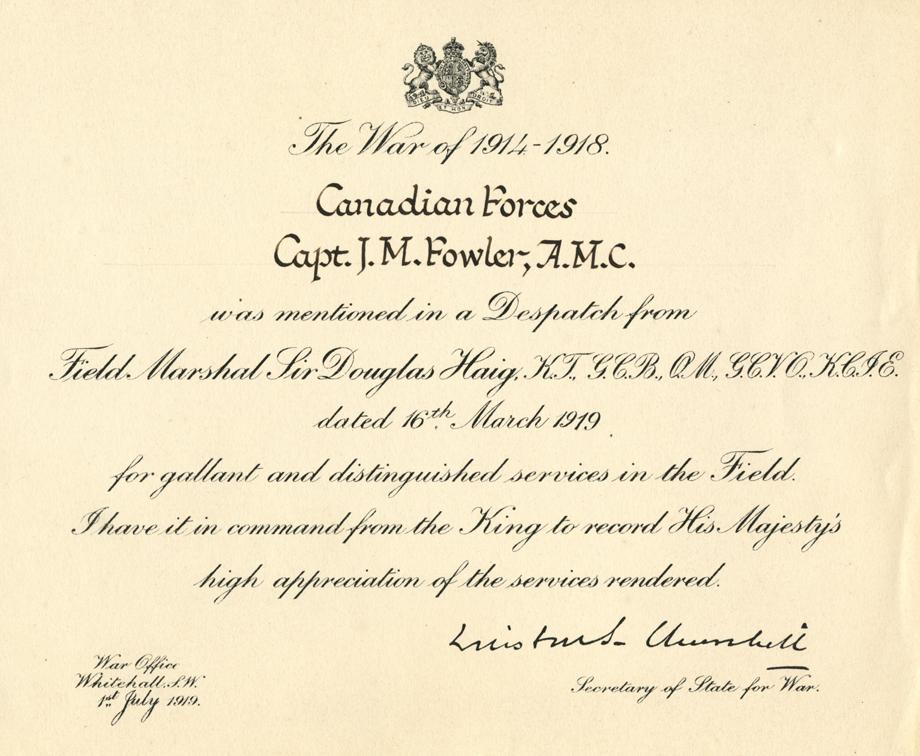 DIEU ET MON DROIT
The War of 1914-1918.
Canadian Forces
Capt. J. M. Fowler, A.M.C.
was mentioned in a Despatch from
Field Marshal Sir Douglas Haig, K.T., G.C.B., O.M., G.C.V.O., K.C.I.E.
dated 16th March 1919
for gallant and distinguished services in the Field.
I have it in command from the King to record His Majesty's
high appreciation of the services rendered.
Winston S. Churchill
Secretary of State for War.
War Office
Whitehall. S.W.
1st July 1919.